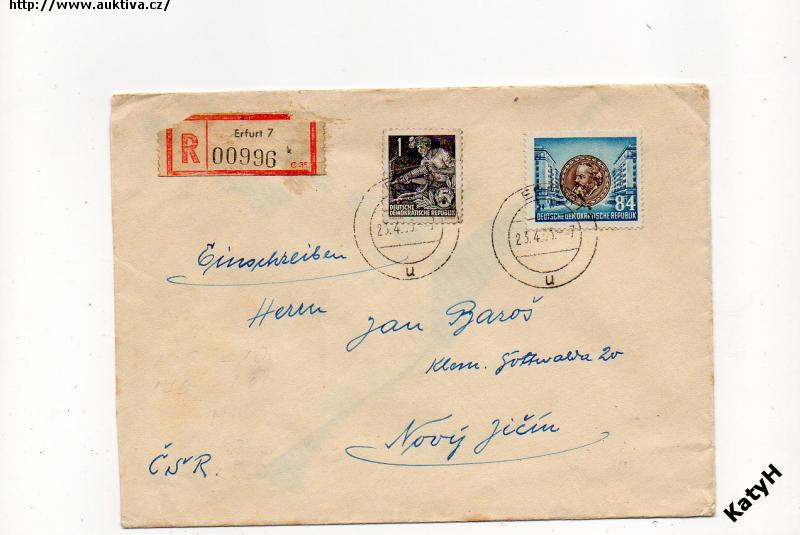 http://www.auktiva.cz/
R
Erfurt 7
00996
1
5
DEUTSCHE
DEMOKRATISCHE REPUBLIK
84
DEUTSCHE DEMOKRATISCHE REPUBLIK
u
u
Einschreiben
Herrn Jan Baroš
Klem. Gottwalda 20
Nový Jičín
ČSR.
KatyH